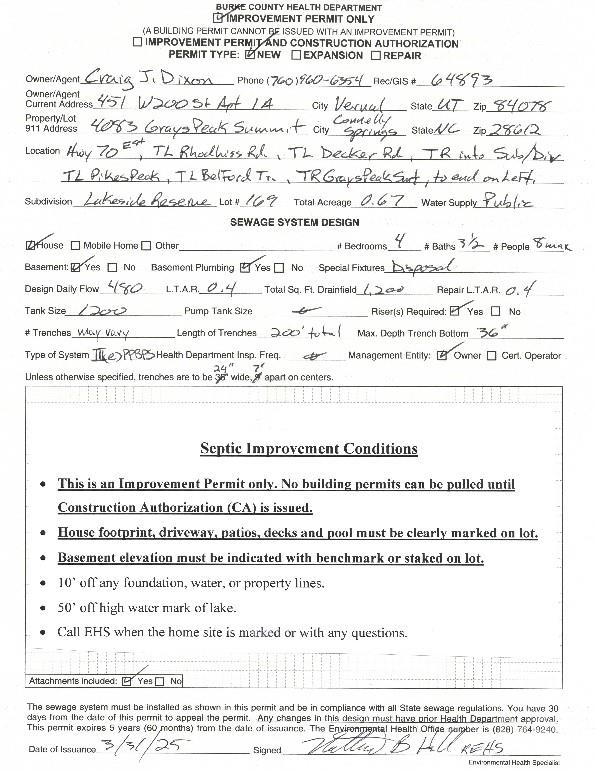 BURKE COUNTY HEALTH DEPARTMENT
☑ IMPROVEMENT PERMIT ONLY
(A BUILDING PERMIT CANNOT BE ISSUED WITH AN IMPROVEMENT PERMIT)
☐ IMPROVEMENT PERMIT AND CONSTRUCTION AUTHORIZATION
PERMIT TYPE: ☑ NEW ☐ EXPANSION ☐ REPAIR
Owner/Agent Craig J. Dixon Phone (760) 960-6354 Rec/GIS # 64893
Owner/Agent Current Address 451 W200 St Apt 1A City Vernal State UT Zip 84078
Property/Lot 911 Address 4083 Grays Peak Summit City Connelly Springs State NC Zip 28612
Location Hwy 70 East, TL Rhodhiss Rd, TL Decker Rd, TR into Sub/Div
TL Pikes Peak, TL Belford Tr., TR Grays Peak Smt, to end on Left.
Subdivision Lakeside Reserve Lot # 169 Total Acreage 0.67 Water Supply Public
SEWAGE SYSTEM DESIGN
☑ House ☐ Mobile Home ☐ Other # Bedrooms 4 # Baths 3½ # People 8 max
Basement: ☑ Yes ☐ No Basement Plumbing ☑ Yes ☐ No Special Fixtures Disposal
Design Daily Flow 480 L.T.A.R. 0.4 Total Sq. Ft. Drainfield 1,200 Repair L.T.A.R. 0.4
Tank Size 1200 Pump Tank Size Riser(s) Required: ☑ Yes ☐ No
# Trenches May Vary Length of Trenches 200' total Max. Depth Trench Bottom 36"
Type of System PPBPS Health Department Insp. Freq. Management Entity: ☑ Owner ☐ Cert. Operator
Unless otherwise specified, trenches are to be 24" wide, 7' apart on centers.
Septic Improvement Conditions
• This is an Improvement Permit only. No building permits can be pulled until
Construction Authorization (CA) is issued.
• House footprint, driveway, patios, decks and pool must be clearly marked on lot.
• Basement elevation must be indicated with benchmark or staked on lot.
• 10' off any foundation, water, or property lines.
• 50' off high water mark of lake.
• Call EHS when the home site is marked or with any questions.
Attachments included: ☑ Yes ☐ No
The sewage system must be installed as shown in this permit and be in compliance with all State sewage regulations. You have 30
days from the date of this permit to appeal the permit. Any changes in this design must have prior Health Department approval.
This permit expires 5 years (60 months) from the date of issuance. The Environmental Health Office number is (828) 764-9240.
Date of Issuance 3/31/25 Signed REHS
Environmental Health Specialist